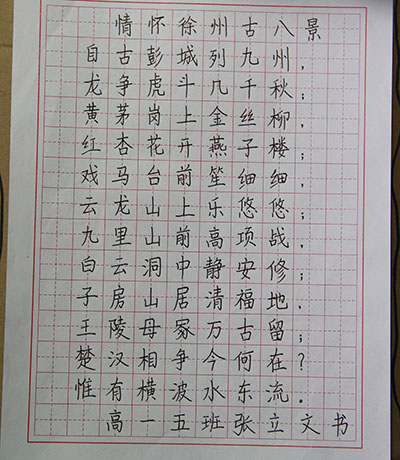 情怀徐州古八景
自古彭城列九州，
龙争虎斗几千秋；
黄茅岗上金丝柳，
红杏花开燕子楼；
戏马台前笙细细，
云龙山上乐悠悠；
九里山前高项战，
白云洞中静安修；
子房山居清福地，
王陵母冢万古留；
楚汉相争今何在？
惟有横波水东流．
高一五班张立文书